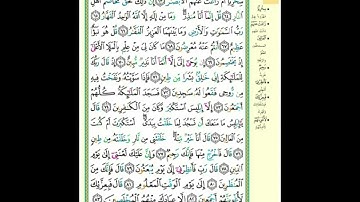 سِخْرِيًّا أَمْ زَاغَتْ عَنْهُمُ ٱلْأَبْصَٰرُ ٦٣ إِنَّ ذَٰلِكَ لَحَقٌّ تَخَاصُمُ أَهْلِ
ٱلنَّارِ ٦٤ قُلْ إِنَّمَآ أَنَا۠ مُنذِرٌ وَمَا مِنْ إِلَٰهٍ إِلَّا ٱللَّهُ ٱلْوَٰحِدُ ٱلْقَهَّارُ ٦٥
رَبُّ ٱلسَّمَٰوَٰتِ وَٱلْأَرْضِ وَمَا بَيْنَهُمَا ٱلْعَزِيزُ ٱلْغَفَّٰرُ ٦٦ قُلْ هُوَ نَبَؤٌا۟
عَظِيمٌ ٦٧ أَنتُمْ عَنْهُ مُعْرِضُونَ ٦٨ مَا كَانَ لِىَ مِنْ عِلْمٍۭ بِٱلْمَلَإِ ٱلْأَعْلَىٰٓ إِذْ
يَخْتَصِمُونَ ٦٩ إِن يُوحَىٰٓ إِلَىَّ إِلَّآ أَنَّمَآ أَنَا۠ نَذِيرٌ مُّبِينٌ ٧٠ إِذْ قَالَ رَبُّكَ
لِلْمَلَٰٓئِكَةِ إِنِّى خَٰلِقٌۢ بَشَرًا مِّن طِينٍ ٧١ فَإِذَا سَوَّيْتُهُۥ وَنَفَخْتُ فِيهِ
مِن رُّوحِى فَقَعُوا۟ لَهُۥ سَٰجِدِينَ ٧٢ فَسَجَدَ ٱلْمَلَٰٓئِكَةُ كُلُّهُمْ
أَجْمَعُونَ ٧٣ إِلَّآ إِبْلِيسَ ٱسْتَكْبَرَ وَكَانَ مِنَ ٱلْكَٰفِرِينَ ٧٤ قَالَ
يَٰٓإِبْلِيسُ مَا مَنَعَكَ أَن تَسْجُدَ لِمَا خَلَقْتُ بِيَدَىَّ أَسْتَكْبَرْتَ أَمْ كُنتَ
مِنَ ٱلْعَالِينَ ٧٥ قَالَ أَنَا۠ خَيْرٌ مِّنْهُ خَلَقْتَنِى مِن نَّارٍ وَخَلَقْتَهُۥ مِن طِينٍ ٧٦
قَالَ فَٱخْرُجْ مِنْهَا فَإِنَّكَ رَجِيمٌ ٧٧ وَإِنَّ عَلَيْكَ لَعْنَتِىٓ إِلَىٰ يَوْمِ
ٱلدِّينِ ٧٨ قَالَ رَبِّ فَأَنظِرْنِىٓ إِلَىٰ يَوْمِ يُبْعَثُونَ ٧٩ قَالَ فَإِنَّكَ مِنَ
ٱلْمُنظَرِينَ ٨٠ إِلَىٰ يَوْمِ ٱلْوَقْتِ ٱلْمَعْلُومِ ٨١ قَالَ فَبِعِزَّتِكَ
لَأُغْوِيَنَّهُمْ أَجْمَعِينَ ٨٢ إِلَّا عِبَادَكَ مِنْهُمُ ٱلْمُخْلَصِينَ ٨٣